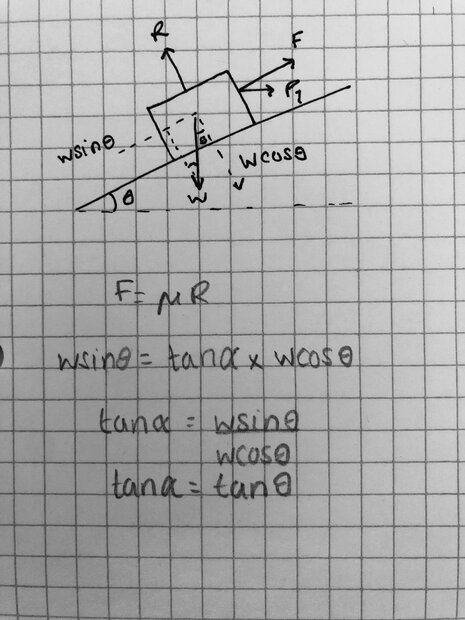 R
F
P₁
wsinθ
θ₁
Wcosθ
θ
W
F = μR
wsinθ = tanα x wcosθ
tanα = wsinθ
wcosθ
tanα = tanθ